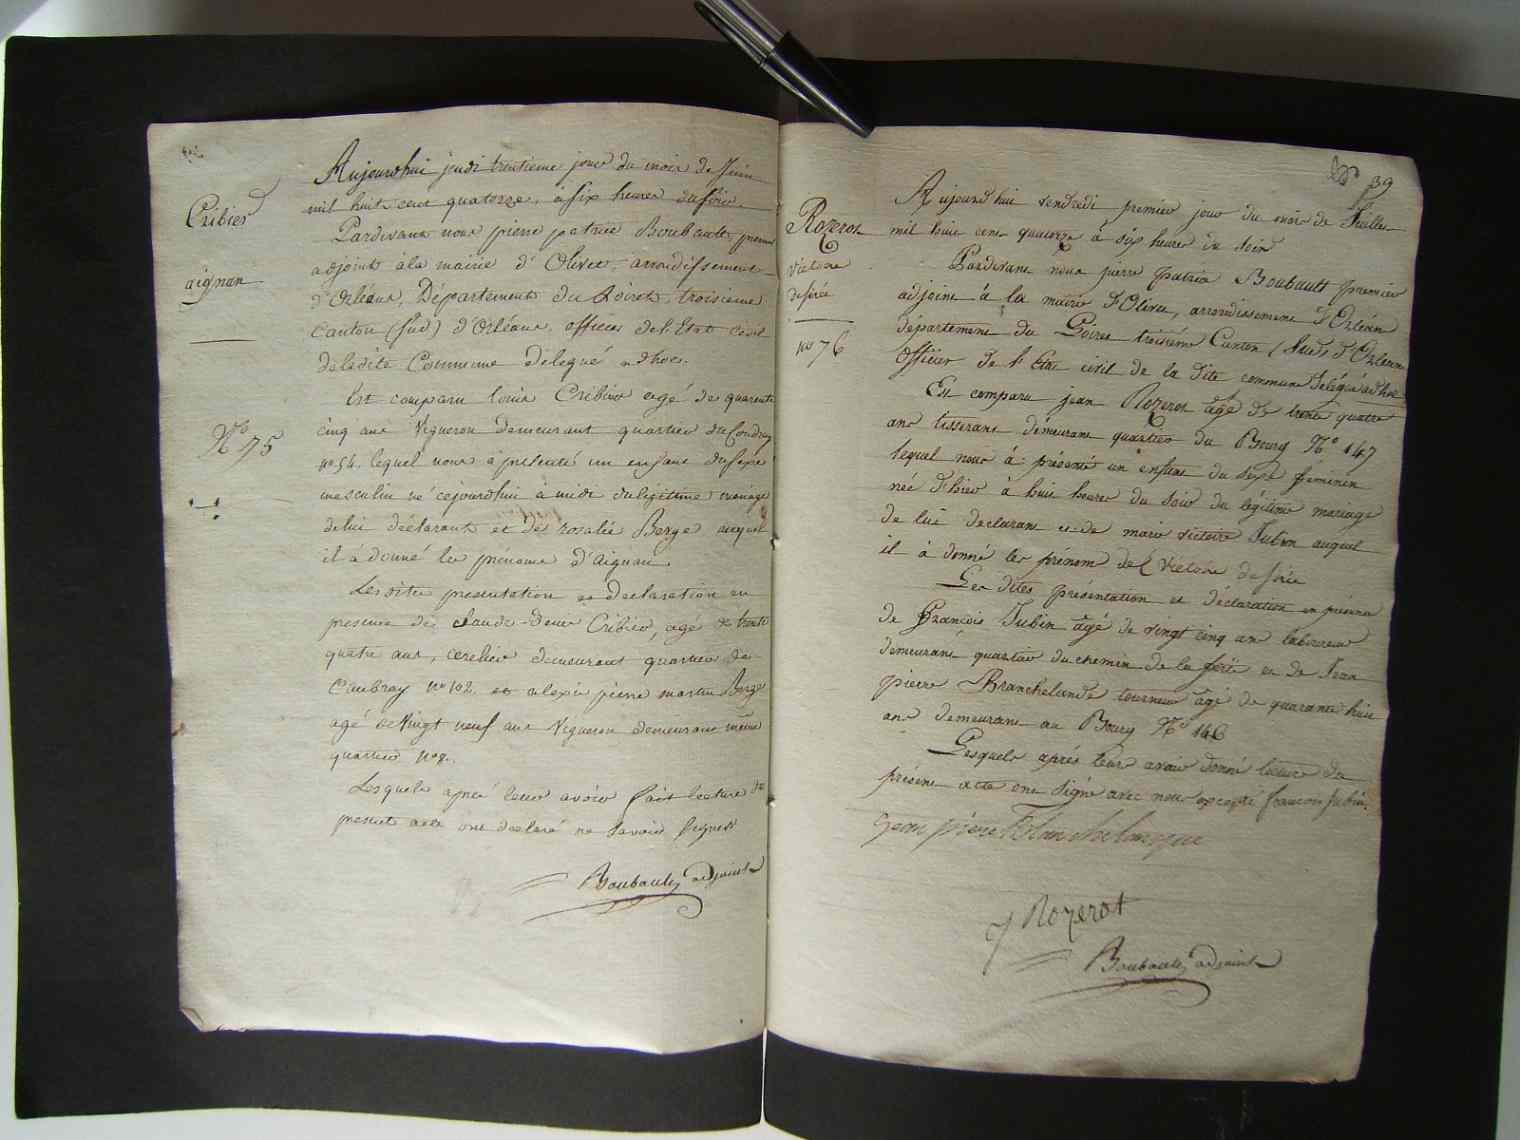 Cribier
aignan
No 75
Aujourdhui jeudi trentieme jour du mois de Juin
mil huit cent quatorze, à six heures du soir.
Pardevant nous pierre patrice Boubault, premier
adjoint à la mairie d'Olivet, arrondissement
d'Orléans, Département du Loiret, troisieme
Canton (sud) d'Orléans, officier de l'Etat civil
de ladite Commune délégué adhoc.
Est comparu louis Cribier agé de quarente
cinq ans Vigneron demeurant quartier du Coudray
no 54. lequel nous à présenté un enfant du sexe
masculin né cejourdhui à midi du légitime mariage
de lui déclarant et de rosalie Berge auquel
il à donné le prénom d'Aignan.
Lesdites presentation et declaration en
presence de claude Cribier, agé de trente
quatre ans, demeurant quartier de
Caubray no 102. et alexis pierre martin Berge
agé de Vingt neuf ans Vigneron demeurant même
quartier no 8.
Lesquels après leur avoir fait lecture du
present acte ont declaré ne savoir signer
Boubault adjoint
39
Rozerot
Victoire
desirée
no 76
Aujourd'hui vendredi premier jour du mois de Juillet
mil huit cent quatorze à six heures du soir
Pardevant nous pierre patrice Boubault premier
adjoint à la mairie d'Olivet, arrondissement d'Orléans
département du Loiret troisième Canton (Sud) d'Orléans
officier de l'Etat civil de la dite commune délégué adhoc
Est comparu jean Rozerot âgé de trente quatre
ans tisserant demeurant quartier du Bourg No 147
lequel nous à présenté un enfant du sexe féminin
née d'hier à huit heures du soir du légitime mariage
de lui declarant et de marie victoire Jubin auquel
il à donné les prénom de Victoire desirée
Les dites présentation et déclaration en présence
de François Jubin âgé de vingt cinq ans laboureur
demeurant quartier du chemin de la ferté et de Jean
pierre Blanchelande tourneur âgé de quarante huit
ans demeurant au Bourg No 146
Lesquels après leur avoir donné lecture du
présent acte ont signé avec nous excepté françois jubin.
Jean pierre
J Rozerot
Boubault adjoint